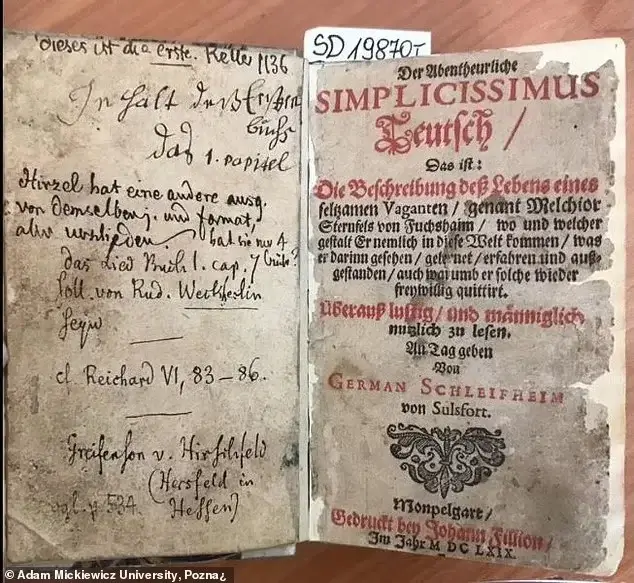 Dieses ist die erste. Keller 1136
Inhalt deß Ersten
buchs
das 1. capitel
Hirzel hat eine andere ausg.
von demselben j. und format,
aber verschieden hat sie nur 4
das Lied Buch 1. cap. 7
soll von Rud. Weckherlin
seyn
cf. Reichard VI, 83–86.
Greifenson v. Hirschfeld
(Hersfeld in
vgl. p. 534. Hessen)
SD 19870 I
Der Abentheurliche
SIMPLICISSIMUS
Teutsch /
Das ist:
Die Beschreibung deß Lebens eines
seltzamen Vaganten / genant Melchior
Sternfels von Fuchshaim / wo und welcher
gestalt Er nemlich in diese Welt kommen / was
er darinn gesehen / gelernet / erfahren und auß-
gestanden / auch warumb er solche wieder
freywillig quittirt.
Überauß lustig / und männiglich
nutzlich zu lesen.
An Tag geben
Von
GERMAN SCHLEIFHEIM
von Sulsfort.
Monpelgart /
Gedruckt bey Johann Fillion /
Im Jahr M DC LXIX.
© Adam Mickiewicz University, Pozna¿